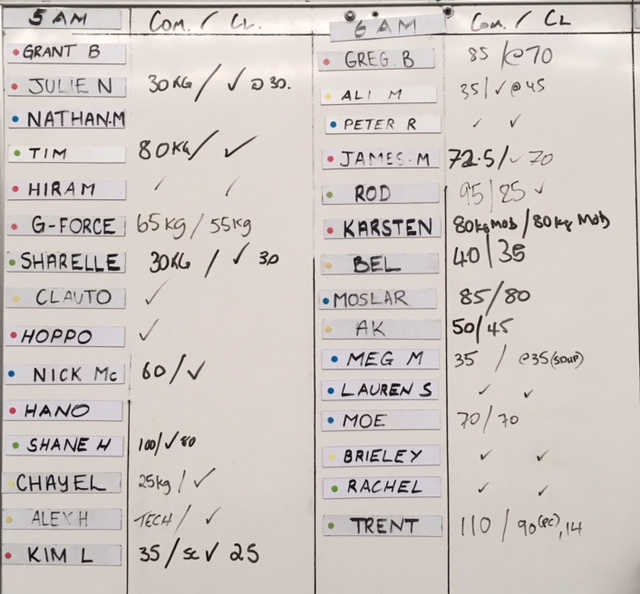 5 AM COM. / CL.
GRANT B
JULIE N 30KG / ✓ @ 30.
NATHAN.M
TIM 80KG/ ✓
HIRAM ✓ ✓
G-FORCE 65kg / 55kg
SHARELLE 30KG / ✓ 30
CLAUTO ✓
HOPPO ✓
NICK Mc 60/✓
HANO
SHANE H 100/✓80
CHAYEL 25kg / ✓
ALEX H TECH/ ✓
KIM L 35/SC✓ 25
6 AM COM. / CL
GREG. B 85 /@70
ALI M 35/✓@45
PETER R ✓ ✓
JAMES. M 72.5/✓70
ROD 95/85✓
KARSTEN 80kgMOD/80kg MOD
BEL 40/35
MOSLAR 85/80
AK 50/45
MEG M 35 / @35
LAUREN S ✓ ✓
MOE 70/70
BRIELEY ✓ ✓
RACHEL ✓ ✓
TRENT 110 / 90(PC),14